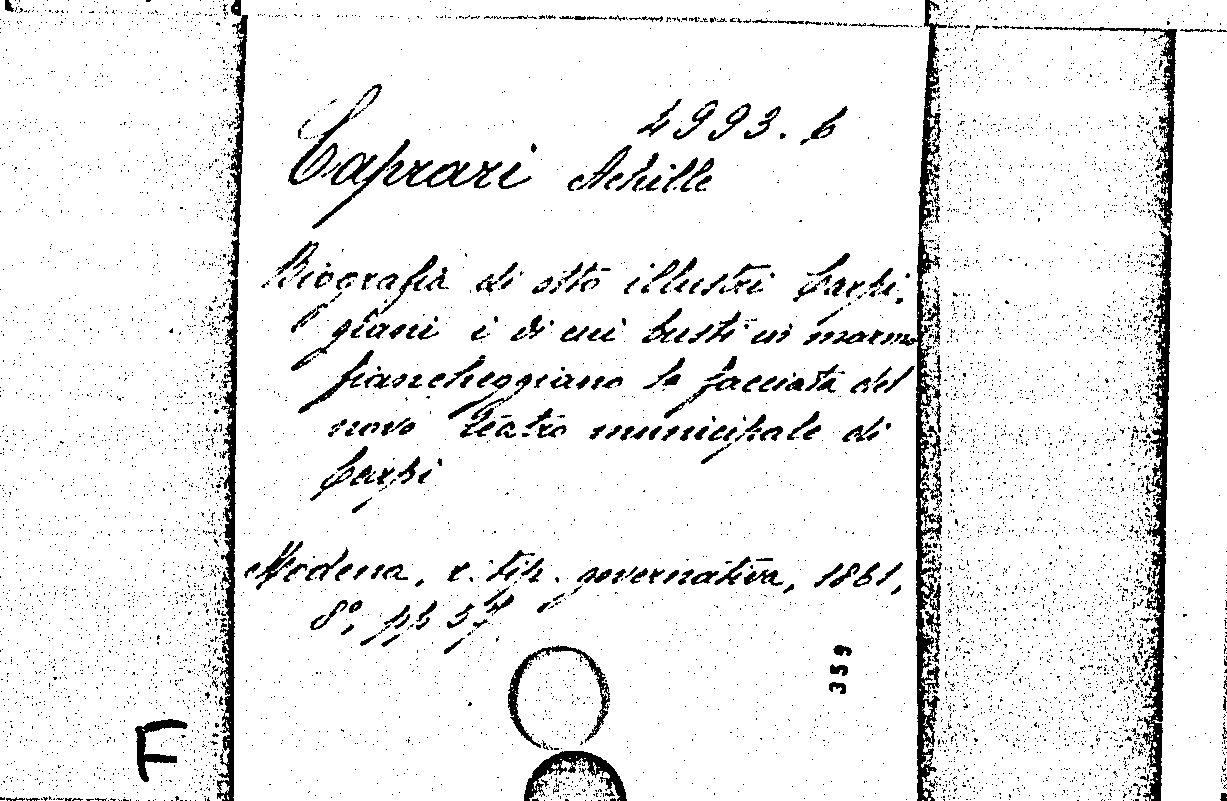 4993. 6
Caprari Achille
Biografia di otto illustri Carpi-
giani i di cui busti in marmo
fiancheggiano la facciata del
novo teatro municipale di
Carpi
Modena, r. tip. governativa, 1861,
8°, pp 57
359
F